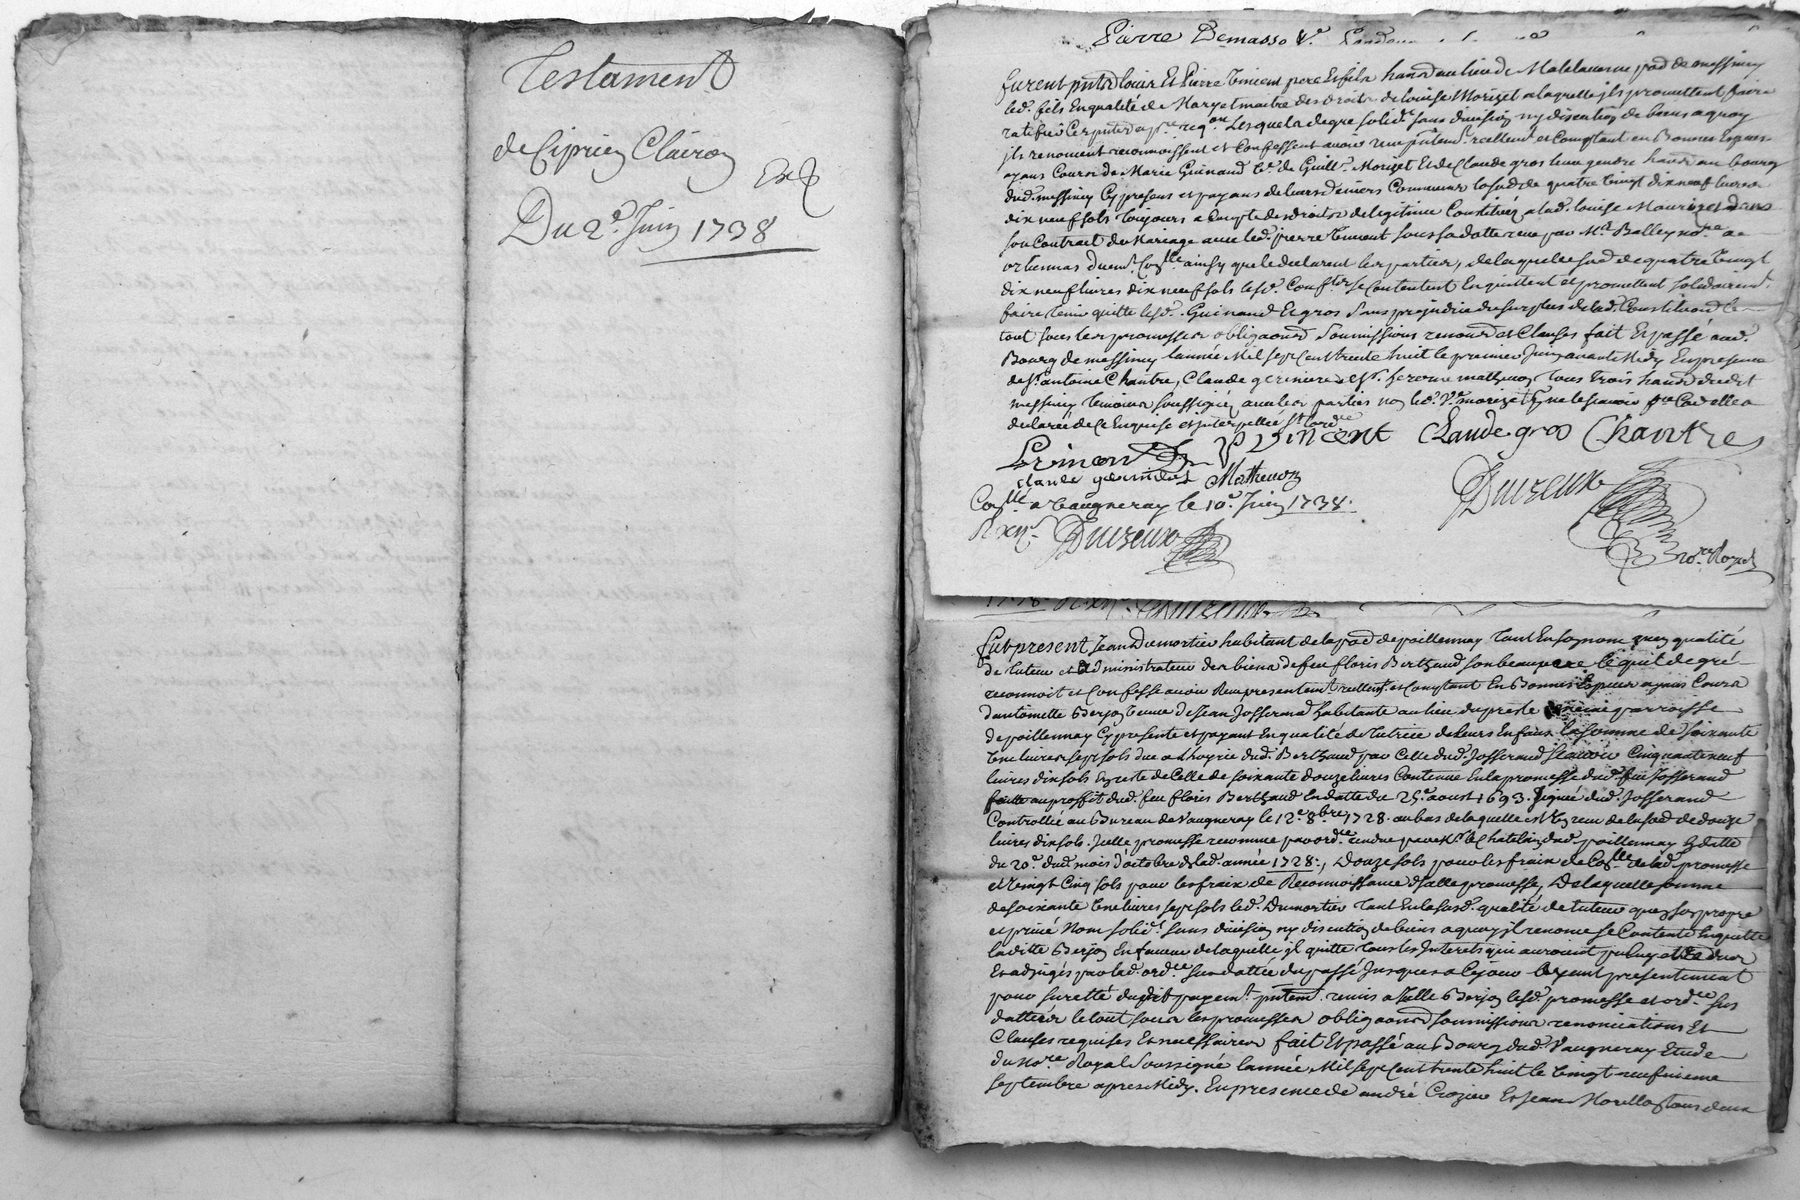 Testament
de Ciprien Clairon
Exp
Du 2e. Juin 1738
Pierre Demasso Ve.
furent pnts Louis Et Pierre Vincent pere Et fils habns au lieu de Malelaverne pad de messimy
led. fils En qualité de Mary et maitre des droits de Louise Morizet a laquelle ils promettent faire
ratifier Ces pntes Lesquels de gre solid. sans division ny discution de biens a quoy
ils renoncent reconnoissent et Confessent avoir receu pntem. reellemt et Comptant en Bonnes Especes
ayans Cours de Marie Guinand Ve. de Guill. Morizet Et de Claude gros leur gendre habns au bourg
dud. messimy Cy presens et payans de leurs deniers Communs la som de quatre vingt dix neuf livres
dix neuf sols toujours a Compte des droits de legitime Constitués a lad. Louise Mourizet dans
son Contract de Mariage avec led. pierre Vincent sous sa datte receu par Me. Balley nore. a
duem. Collé ainsy que le declarent les parties, de laquelle som de quatre vingt
dix neuf livres dix neuf sols lesd. Confts se Contentent En quittent et promettent solidairemt.
faire tenir quitte lesd. Guinand Et gros sans prejudice du surplus de lad. Constituon le
tout sous les promesses obligaons soumissions renonons et Clauses fait Et passé aud.
Bourg de messimy l'année Mil sept Cent trente huit le premier Juin avant Midy En presence
de sr. antoine Chantre, Claude gerinier et sr. Jerome mathevon tous trois habns dudit
messimy temoins soussignés avec les parties non lad. Ve. morizet pr. ne le scavoir
declarée de Ce Enquise et interpellée st. lordce
P Vincent Claude gros Chantre
claude gerinier Mathevon
Collé a Vaugneray le 10e. Juin 1738.
R xijs. Duizeux
Duizeux
nore. Royal
1738. R xijs. Duizeux
Fut present Jean Dumortier habitant de la pad de poillennay tant En son nom qu'en qualité
de tuteur et administrateur des biens de feu floris Berthaud son beaupere lequel de gré
reconnoit et Confesse avoir Receu presentemt reellemt. et Comptant En Bonnes Especes ayans Cours
d'antoinette Berjon veuve de Jean Josserand habitante au lieu du parroisse
de poillennay Cy presente et payant En qualité de tutrice de leurs Enfans la somme de soixante
une livres sept sols due a l'hoyrie dud. Berthaud par Celle dud. Josserand scavoir Cinquante neuf
livres dix sols En reste de Celle de soixante douze livres Contenue En la promesse dud. feu Josserand
faitte au proffit dud. feu floris Berthaud En datte du 25e. aoust 1693. signée dud. Josserand
Controllée au Bureau de Vaugneray le 12e. 8bre. 1728. au bas de laquelle est Un receu de la som de douze
livres dix sols. Icelle promesse reconnue par ordce. rendue par Mr. le Chatelain dud. poillennay En datte
du 20e. dud. mois d'octobre de lad. année 1728., Douze sols pour les fraix de Collé de lad. promesse
et vingt Cinq sols pour les fraix de Reconnoissance d'Icelle promesse, De laquelle somme
de soixante une livres sept sols led. Dumortier tant En lad susd. qualité de tuteur que En son propre
et privé Nom solidt. sans division ny discution de biens a quoy il renonce se Contente En quitte
laditte Berjon En faveur de laquelle il quitte tous les Interets qui auroient pu luy etre dus
Et adjugés par lad. ordce sus dattée du passé jusques a Ce jour ayant presentement
pour sureté dudit payemt. pntemt. remis a Icelle Berjon lesd. promesse et ordce sus
dattées le tout sous les promesses obligaons soumissions renonciations Et
Clauses requises Et necessaires fait Et passé au Bourg dud. Vaugneray Etude
du Nore. Royal soussigné l'année Mil sept Cent trente huit le vingt neufvieme
septembre apres Midy. En presence de andré Crozier Et Jean Morellon tous deux